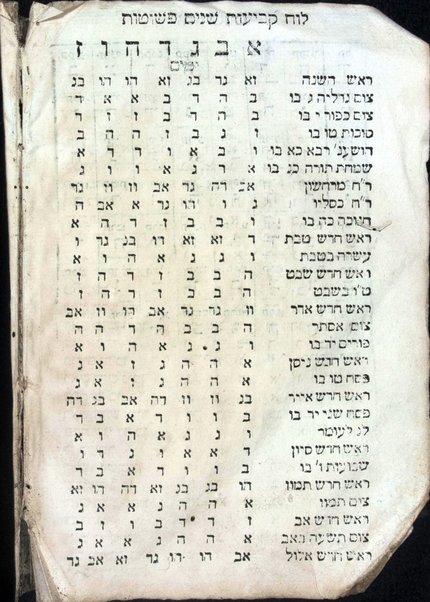 לוח קביעות שנים פשוטות
א ב ג ד ה ו ז
ימים
ראש השנה זא גד בג זא הו הו בג
צום גדליה ג בו ב ה ד ב א א ד
צום כפור י בו ב ה ד ב ז ז ד
סוכות טו בו ז ג ב ז ה ה ב
הושענ' רבא כא בו ו ב א ו ד ד א
שמחת תורה כג בו א ד ג א ו ו ג
ר"ח מרחשון אב דה גד אב וז וז גד
ר"ח כסליו ג ו הו גד א אב ה
חנוכה כה בו ו ב ב ז ד ה א
ראש חדש טבת ד זא זא הו בג גד ו
עשרה בטבת ו ג ג א ה ו א
ראש חדש שבט ה ב ב ז ד ה ז
ט"ו בשבט ה ב ב ז ד ה ז
ראש חדש אדר וז גד גד אב הו וז אב
צום אסתר ה ב ב ה ד ה ה
פורים יד בו ו ג ג א ה ו א
ראש חדש ניסן א ה ה ג ז א ג
פסח טו בו א ה ה ג ז א ג
ראש חדש אייר בג וז וז דה אב בג דה
פסח שני יד בו ב ו ו ד א ב ד
לג לעומר ו ג ג א ה ו א
ראש חדש סיון ד א א ו ג ד ו
שבועות ו' בו ב ו ו ד א ב ד
ראש חדש תמוז הו בג בג זא דה הו זא
צום תמוז א ה ה ג א א ג
ראש חדש אב ז ד ד ב ו ז ב
צום תשעה באב א ה ה ג א א ג
ראש חדש אלול אב הו הו גד זא אב גד